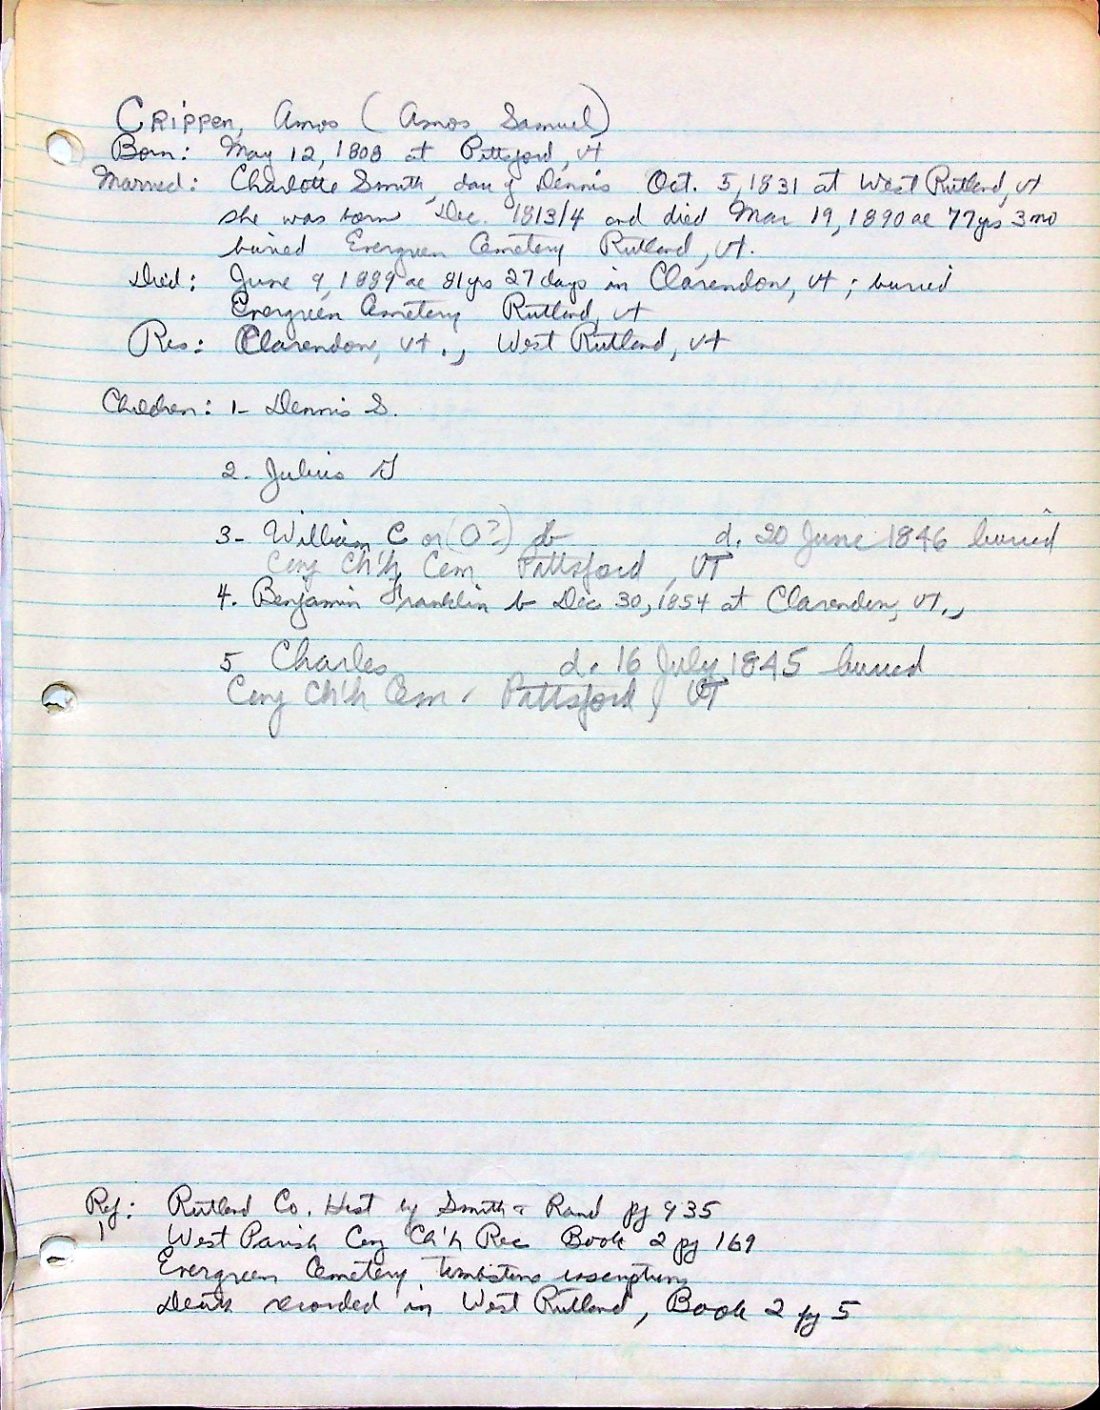 Crippen, Amos (Amos Samuel)
Born: May 12, 1808 at Pittsford, Vt
Married: Charlotte Smith, dau of Dennis Oct. 5, 1831 at West Rutland, Vt
she was born Dec. 1813/4 and died Mar 19, 1890 ae 77yrs 3mo
buried Evergreen Cemetery Rutland, Vt.
Died: June 9, 1889 ae 81yrs 27days in Clarendon, Vt; buried
Evergreen Cemetery Rutland, Vt
Res: Clarendon, Vt., West Rutland, Vt
Children: 1- Dennis S.
2. Julius
3- William C or (O?) b d. 20 June 1846 buried
Cong Ch'h Cem Pittsford, VT
4. Benjamin Franklin b Dec 30, 1854 at Clarendon, Vt.,
5 Charles d. 16 July 1845 buried
Cong Ch'h Cem. Pittsford, VT
Ref: Rutland Co. Hist by Smith & Rand pg 935
1 West Parish Cong Ch'h Rec Book 2 pg 169
Evergreen Cemetery Tombstone inscriptions
Death recorded in West Rutland, Book 2 pg 5